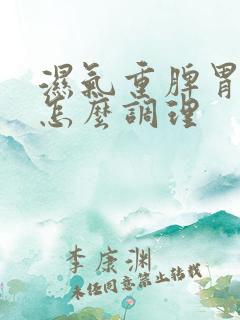 濕氣重脾胃
怎麼調理
李康淵
未任同意禁止转载